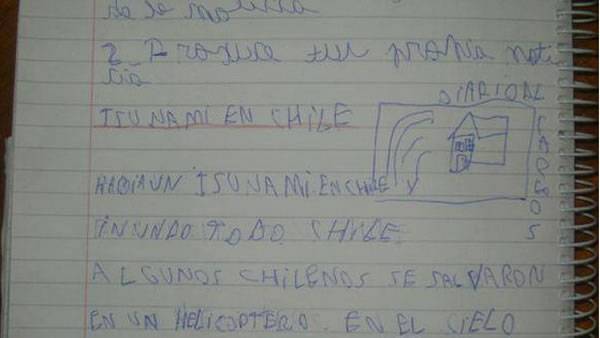 de la noticia
2_Produce tu propia noti
cia
DIARIO AL
TSUNAMI EN CHILE
HABIA UN TSUNAMI EN CHILE Y
INUNDO TODO CHILE
ALGUNOS CHILENOS SE SALVARON
EN UN HELICOPTERO. EN EL CIELO